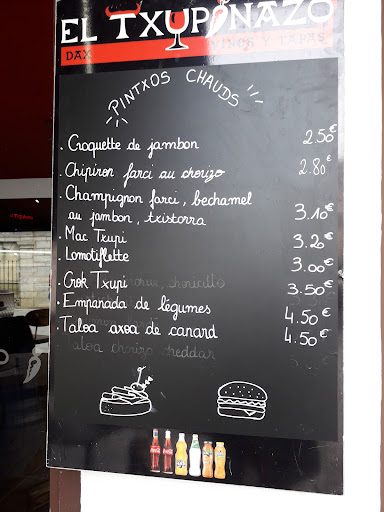 EL TXUPINAZO
DAX VINOS Y TAPAS
PINTXOS CHAUDS
. Croquette de jambon 2.50€
. Chipiron farci au chorizo 2.80€
. Champignon farci, bechamel
au jambon, txistorra 3.10€
. Mac Txupi 3.20€
. Lomotiflette 3.00€
. Crok Txupi 3.50€
. Empanada de légumes 4.50€
. Taloa axoa de canard 4.50€
taloa chorizo cheddar